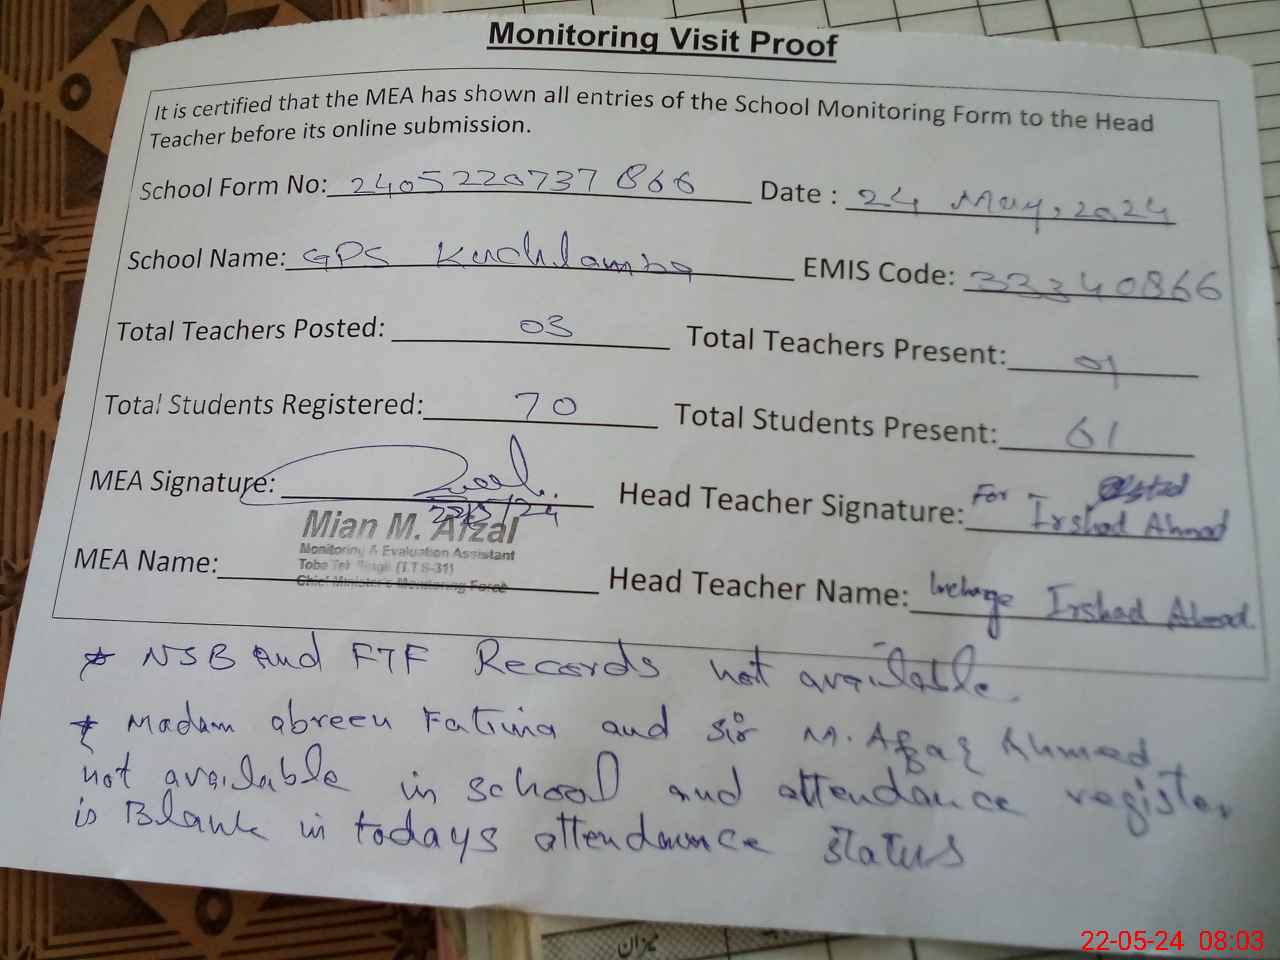 Monitoring Visit Proof
It is certified that the MEA has shown all entries of the School Monitoring Form to the Head
Teacher before its online submission.
School Form No: 2405220737 866 Date : 24 May, 2024
School Name: GPS Kuchlamba EMIS Code: 33340866
Total Teachers Posted: 03 Total Teachers Present: 01
Total Students Registered: 70 Total Students Present: 61
MEA Signature: Head Teacher Signature: For Irshad Ahmad
22/5/24
Mian M. Afzal
Monitoring & Evaluation Assistant
Toba Tek Singh (T.T.S-31)
Chief Minister's Monitoring Force
MEA Name: Head Teacher Name: Incharge Irshad Ahmad
* NSB And FTF Records not available.
* Madam abreen Fatima and Sir M. Afaq Ahmed
not available in school and attendance register
is Blank in todays attendaunce status
میزان
22-05-24 08:03